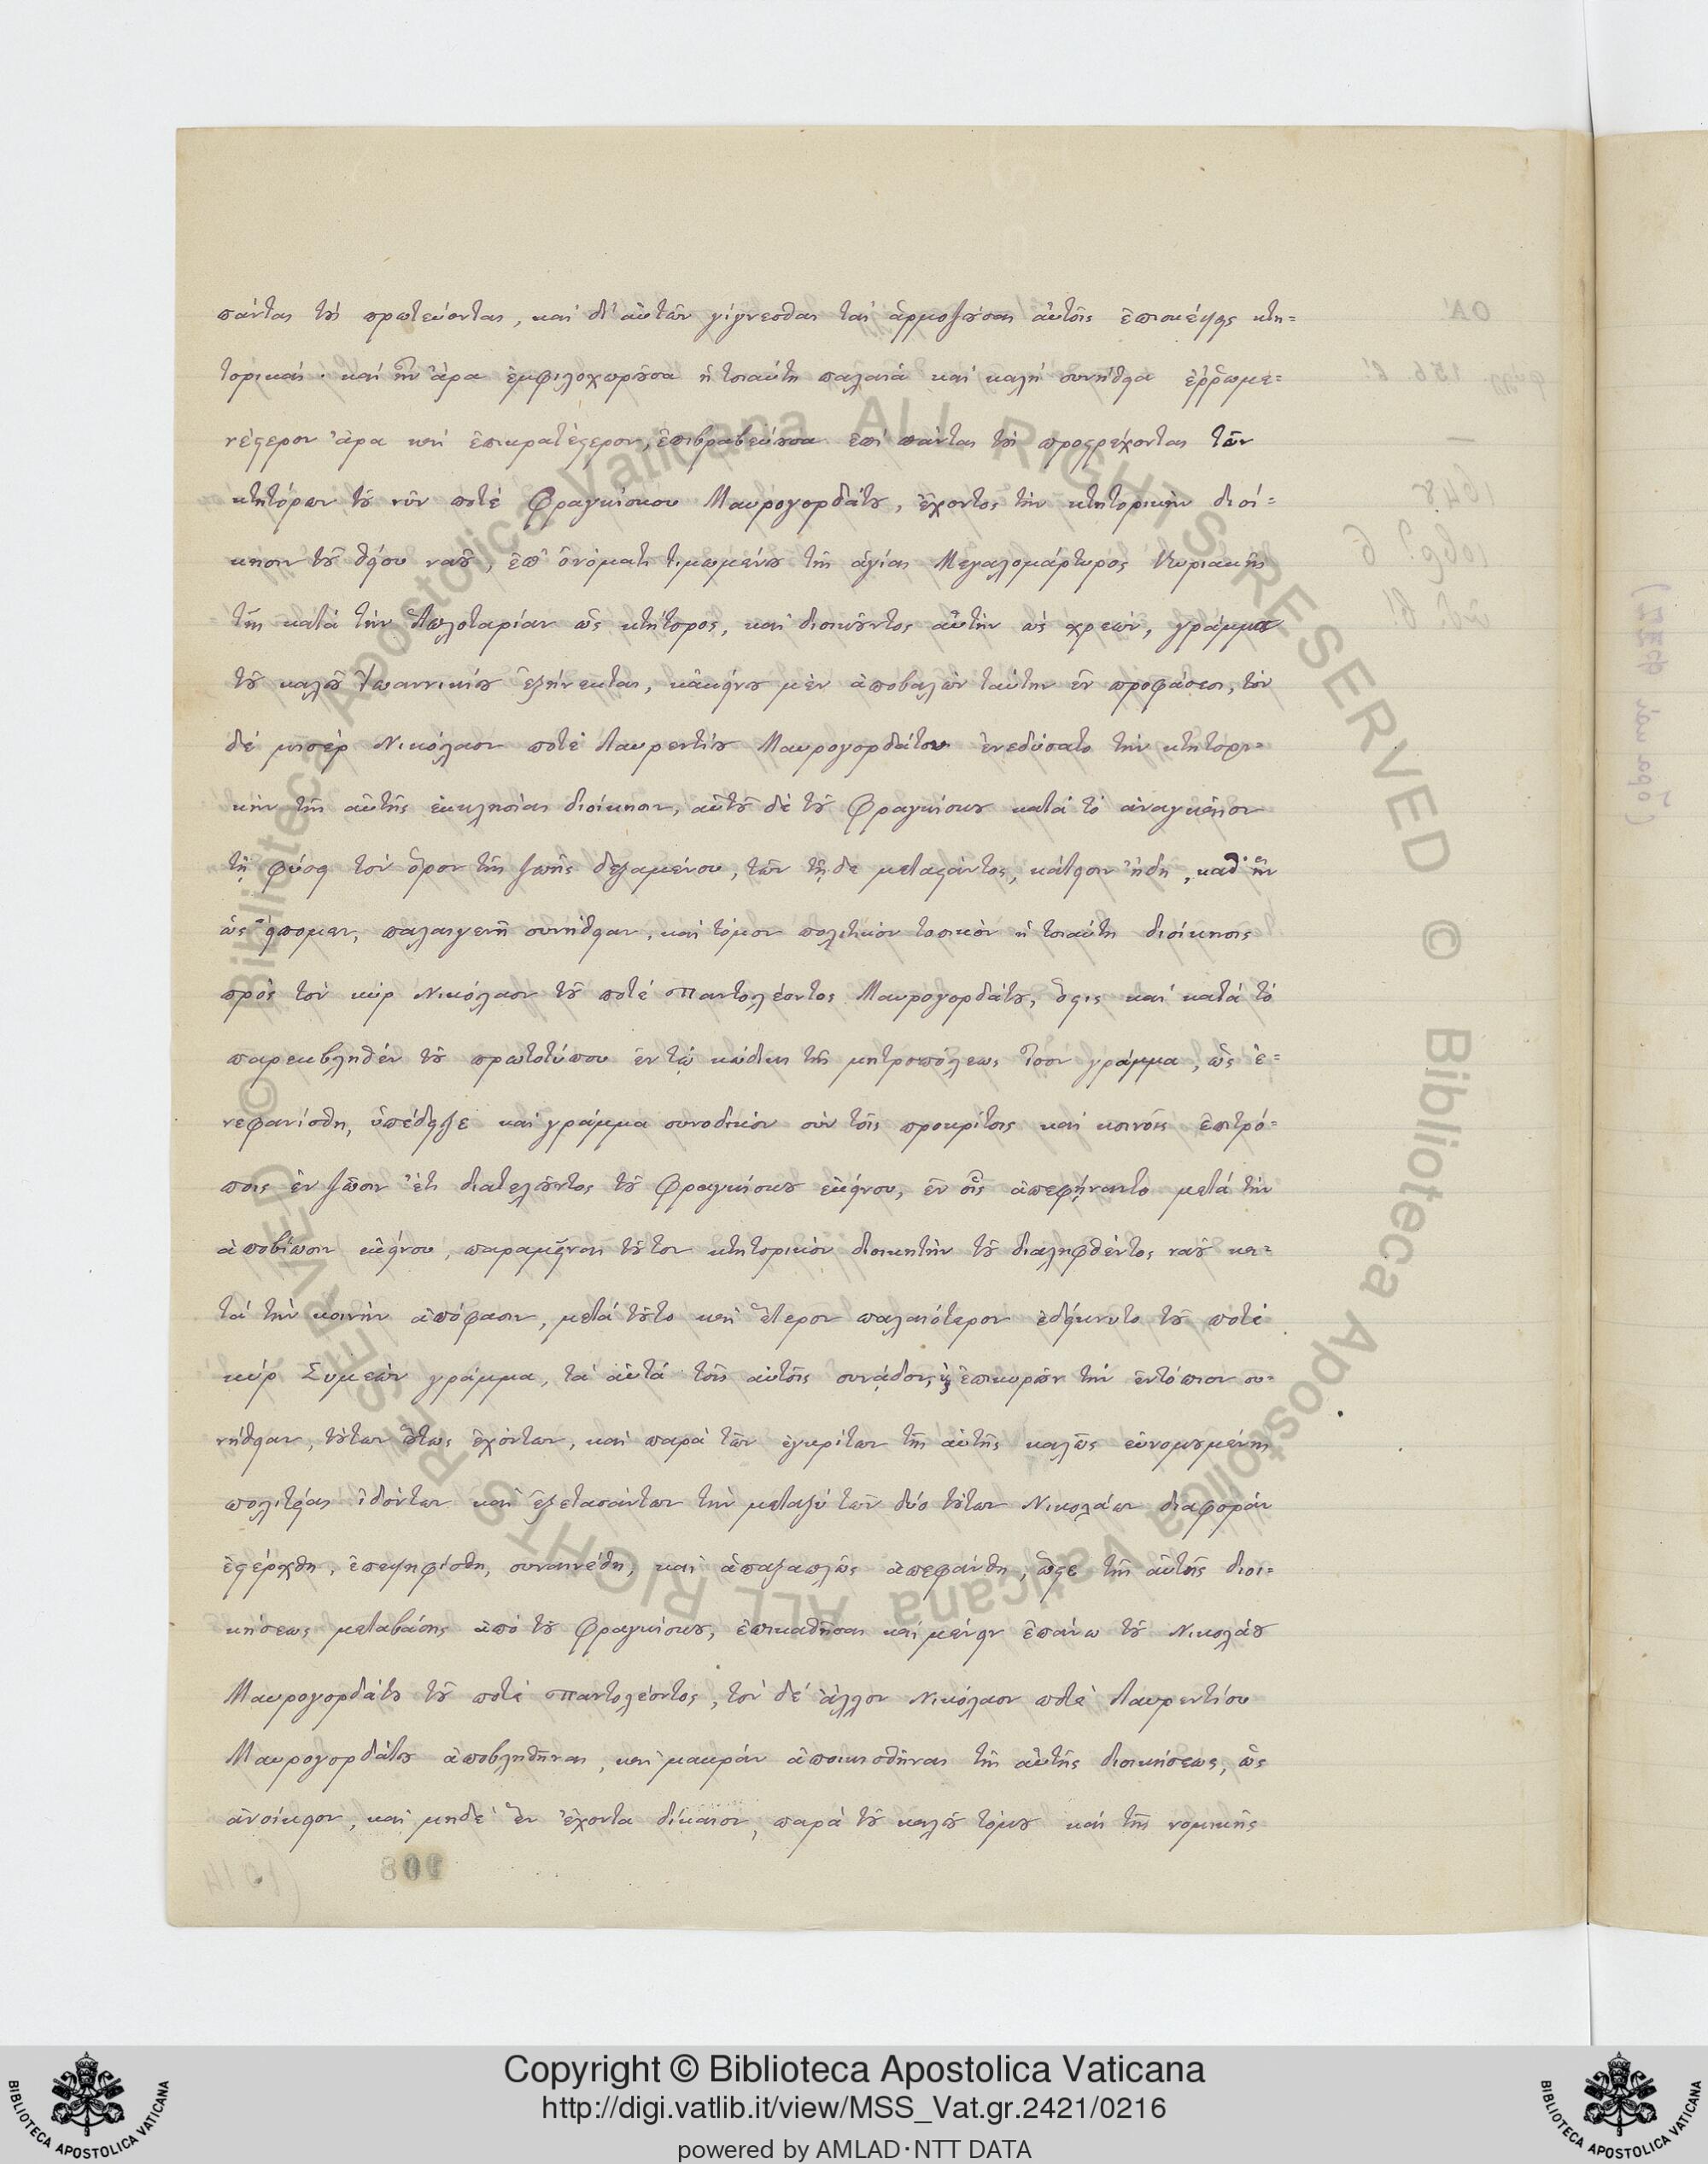 πάντας τοὺς πρωτεύοντας, καὶ δι' αὐτῶν γίγνεσθαι ταὶ ἁρμοζούσαι αὐτοῖς ἐπισκέψεις κτη=
τορικαί. καὶ ἦν ἄρα ἐμφιλοχωροῦσα ἡ τοιαύτη παλαιὰ καὶ καλὴ συνήθεια ἐρρωμε=
νέστερον ἄρα καὶ ἐπικρατέστερον, ἐπιβραβεύουσα ἐπὶ πάντας τοὺς προστρέχοντας τῶν
κτητόρων τοῦ νῦν ποτὲ Φραγκίσκου Μαυρογορδάτου, ἔχοντος τὴν κτητορικὴν διοί=
κησιν τοῦ θείου ναοῦ, ἐπ' ὀνόματι τιμωμένου τῆς ἁγίας Μεγαλομάρτυρος Κυριακῆς
τῆς κατὰ τὴν Ἁπλοταρίαν ὡς κτήτορος, καὶ διοικοῦντος αὐτὴν ὡς χρεὼν, γράμμα
τοῦ καλοῦ Ἰωαννικίου ἐξήνεκται, κἀκείνου μὲν ἀποβαλὼν ταύτην ἐν προφάσει, τὸν
δὲ μισὲρ Νικόλαον ποτὲ Λαυρεντίου Μαυρογορδάτου ἐνεδύσατο τὴν κτητορι=
κὴν τῆς αὐτῆς ἐκκλησίας διοίκησιν, αὐτοῦ δὲ τοῦ Φραγκίσκου κατὰ τὸ ἀναγκαῖον
τῇ φύσει τὸν ὅρον τῆς ζωῆς δεξαμένου, τῶν τῇδε μεταστάντος, κάτεισιν ἤδη, καθ' ἣν
ὡς εἴπομεν, παλαιγενῆ συνήθειαν, καὶ νόμον πολιτικὸν τοπικὸν ἡ τοιαύτη διοίκησις
πρὸς τὸν κὺρ Νικόλαον τοῦ ποτὲ Παντολέοντος Μαυρογορδάτου, ὅστις καὶ κατὰ τὸ
παρεκβληθὲν τοῦ πρωτοτύπου ἐν τῷ κώδικι τῆς μητροπόλεως ἴσον γράμμα, ὡς ἐ=
νεφανίσθη, ὑπέδειξε καὶ γράμμα συνοδικὸν σὺν τοῖς προκρίτοις καὶ κοινοῖς ἐπιτρό=
ποις ἐν ζῶσιν ἔτι διατελοῦντος τοῦ Φραγκίσκου ἐκείνου, ἐν οἷς ἀπεφήναντο μετὰ τὴν
ἀποβίωσιν ἐκείνου, παραμεῖναι τοῦτον κτητορικὸν διοικητὴν τοῦ διαληφθέντος ναοῦ κα=
τὰ τὴν κοινὴν ἀπόφασιν, μετὰ τοῦτο καὶ ἕτερον παλαιότερον ἐδείκνυτο τοῦ ποτὲ
κὺρ Συμεὼν γράμμα, τὰ αὐτὰ τοῖς αὐτοῖς συνᾷδον, ϗ ἐπικυροῦν τὴν ἐντόπιον συ=
νήθειαν, τούτων οὕτως ἐχόντων, καὶ παρὰ τῶν ἐγκρίτων τῆς αὐτῆς καλῶς εὐνομουμένης
πολιτείας ἰδόντων καὶ ἐξετασάντων τὴν μεταξὺ τῶν δύο τούτων Νικολάων διαφορὰν
ἐστέρχθη, ἐπεψηφίσθη, συνῃνέθη, καὶ ἁπαξαπλῶς ἀπεφάνθη, ὥστε τῆς αὐτῆς διοι=
κήσεως μεταβάσης ἀπὸ τοῦ Φραγκίσκου, ἐπικαθῆσαι καὶ μένειν ἐπάνω τοῦ Νικολάου
Μαυρογορδάτου τοῦ ποτὲ Παντολέοντος, τὸν δὲ ἄλλον Νικόλαον ποτὲ Λαυρεντίου
Μαυρογορδάτου ἀποβληθῆναι, καὶ μακρὰν ἀποικισθῆναι τῆς αὐτῆς διοικήσεως, ὡς
ἀνοίκειον, καὶ μηδὲ ἓν ἔχοντα δίκαιον, παρὰ τοῦ καλοῦ νόμου καὶ τῆς νομικῆς
© Biblioteca Apostolica Vaticana ALL RIGHTS RESERVED © Biblioteca Apostolica Vaticana ALL RIGHTS RESERVED
Copyright © Biblioteca Apostolica Vaticana
http://digi.vatlib.it/view/MSS_Vat.gr.2421/0216
powered by AMLAD·NTT DATA
BIBLIOTECA APOSTOLICA VATICANA
BIBLIOTECA APOSTOLICA VATICANA